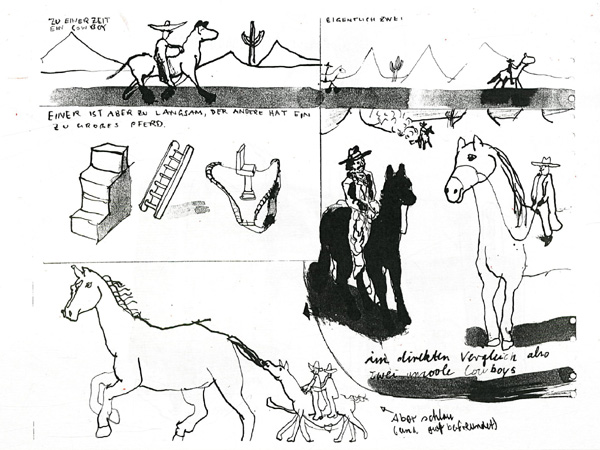 ZU EINER ZEIT
EIN COWBOY
EIGENTLICH ZWEI
EINER IST ABER ZU LANGSAM, DER ANDERE HAT EIN
ZU GROßES PFERD.
im direkten Vergleich also
zwei uncoole Cowboys
Aber schlau
(und gut befreundet)